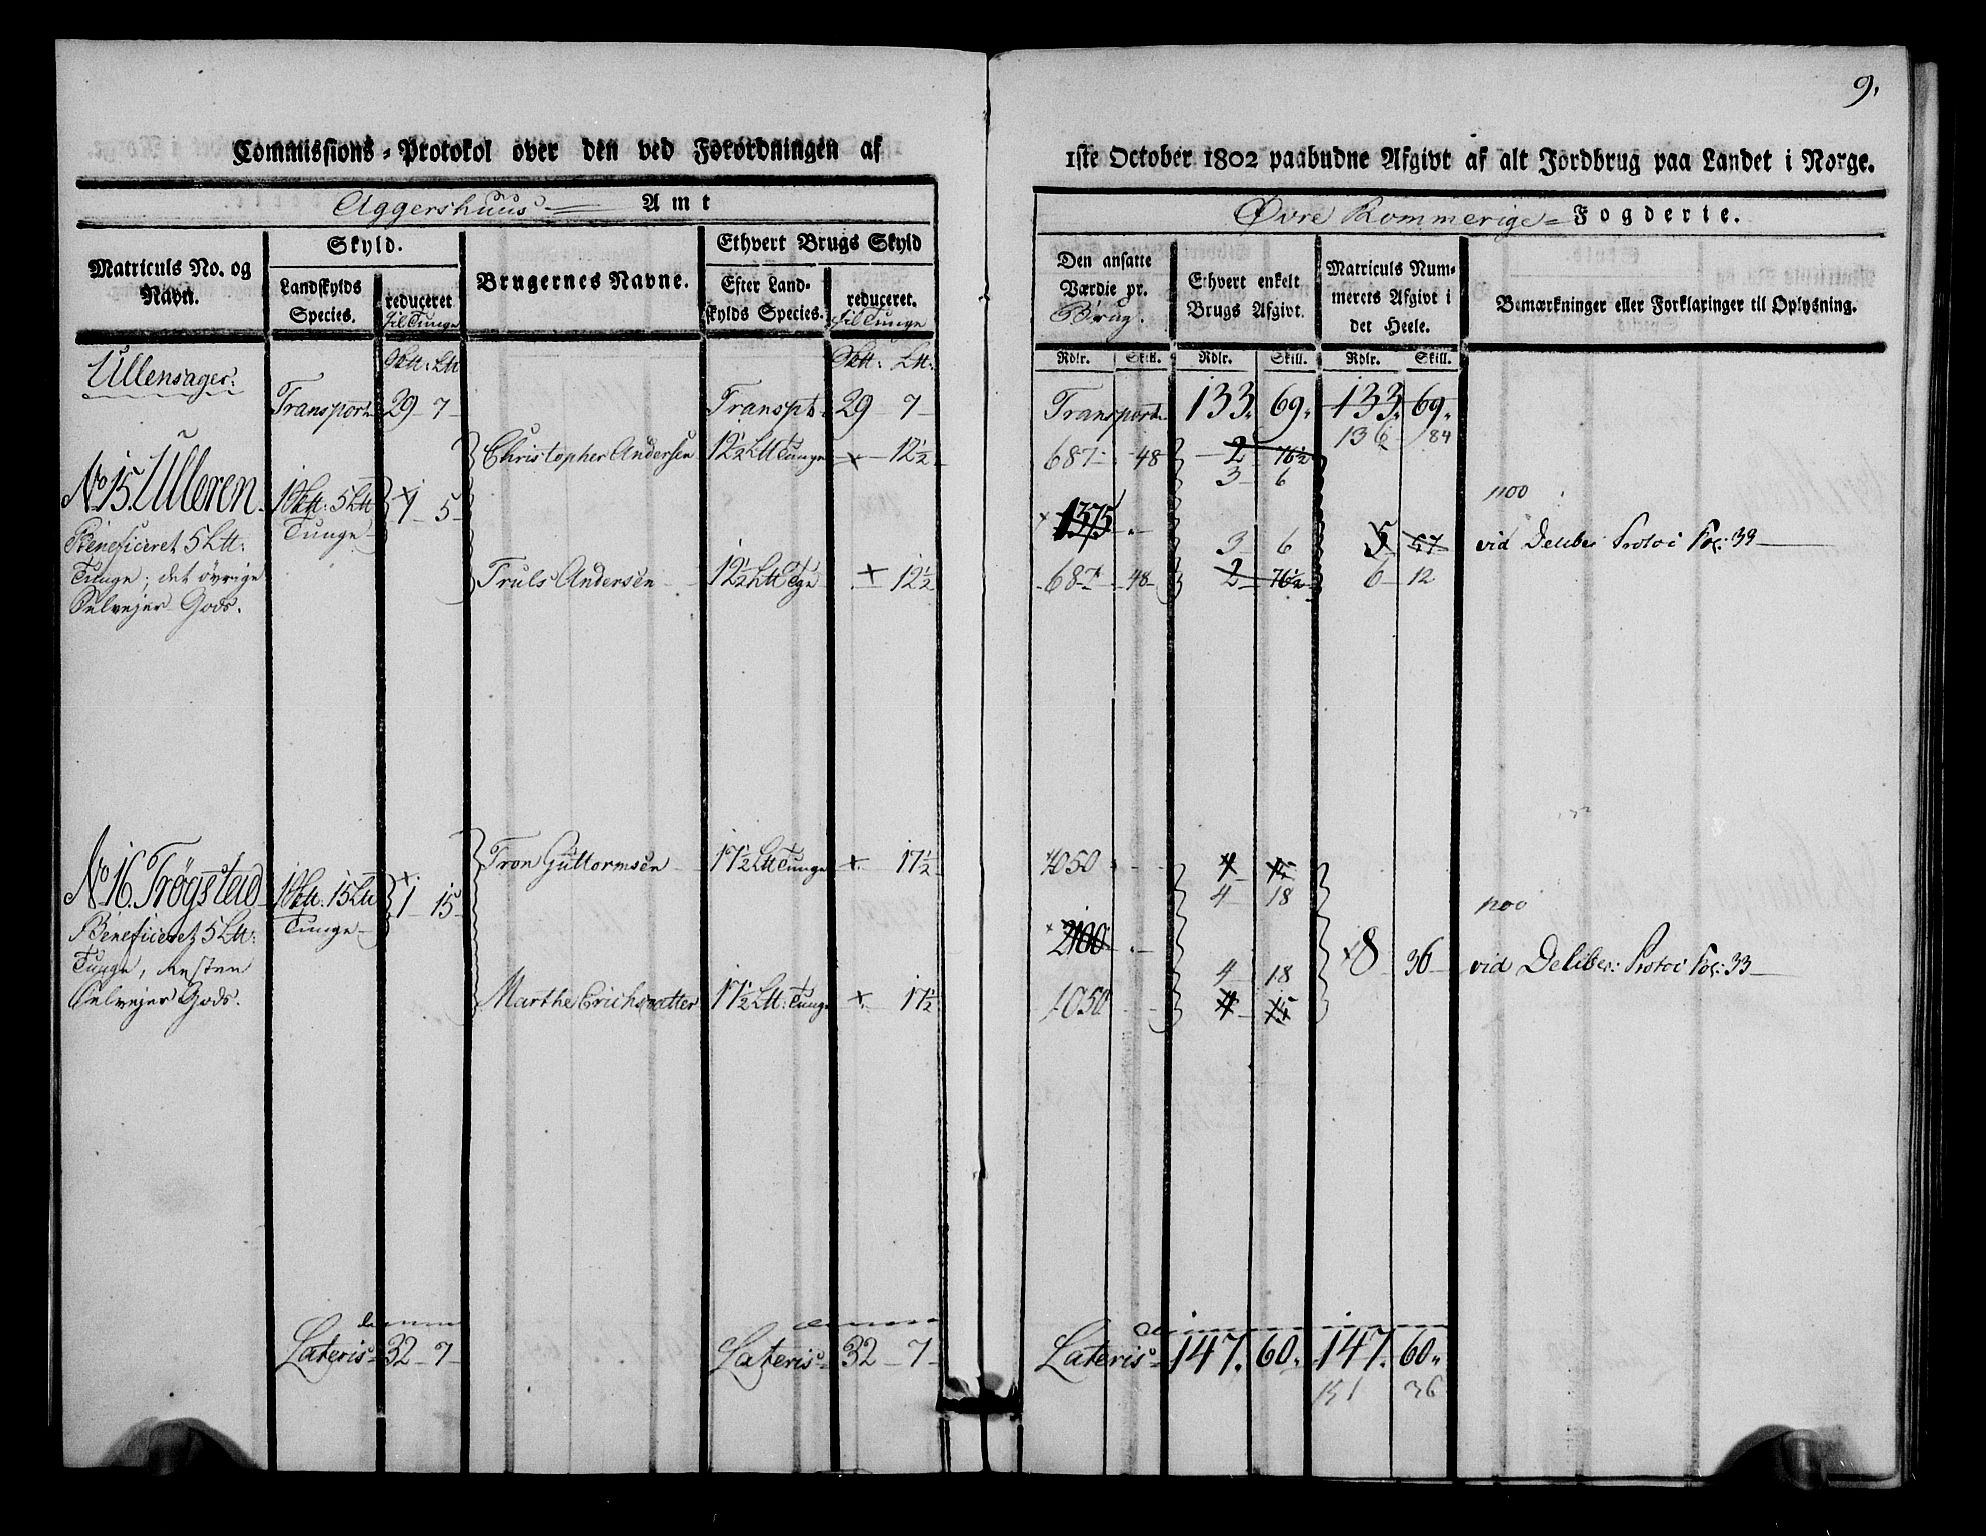 9.
Commissions-Protokol over den ved Forordningen af
1ste October 1802 paabudne Afgivt af alt Jordbrug paa Landet i Norge.
Aggershuus Amt
Øvre Rommerige Fogderie.
Matriculs No. og Navn.
Skyld.
Landskylds Species.
reduceret til Tunge
Brugernes Navne.
Ethvert Brugs Skyld
Efter Landskylds Species.
reduceret. til Tunge
Den ansatte Værdie pr. Brug.
Ethvert enkelt Brugs Afgivt.
Matriculs Nummerets Afgivt i det Heele.
Bemærkninger eller Forklaringer til Oplysning.
Rdlr. Skill. Rdlr. Skill. Rdlr. Skill.
Ullensager:
Transport 29 7 Transpt 29 7 Transport 133. 69. 133. 69.
136 84
Christopher Andersen 12½ Ltt Tunge 12½ 687 48 2 76½
3 6
No 15. Ulleren 5 Ltt Tunge 1 5 1375
1100
Beneficeret 5 Ltt: 3 6 5 57 vid Deliber Protoc Fol: 33
Tunge; det øvrige Truls Andersen 12½ Ltt Tge 12½ 687 48 2 76½ 6 12
Selvejer Gods.
Tron Guttormsen 17½ Ltt Tunge 17½ 1050 4
4 18
No 16. Trøgstad 15 Ltt Tunge 1 15
Beneficeret 5 Ltt: 2100
Tunge, Resten 4 18 8 36 vid Deliber: Protoc Fol: 33
Selvejer Gods. Marthe Erichsdatter 17½ Ltt: Tunge 17½ 1050 4
Lateris 32 7 Lateris 32 7 Lateris 147. 60. 147. 60.
151 36